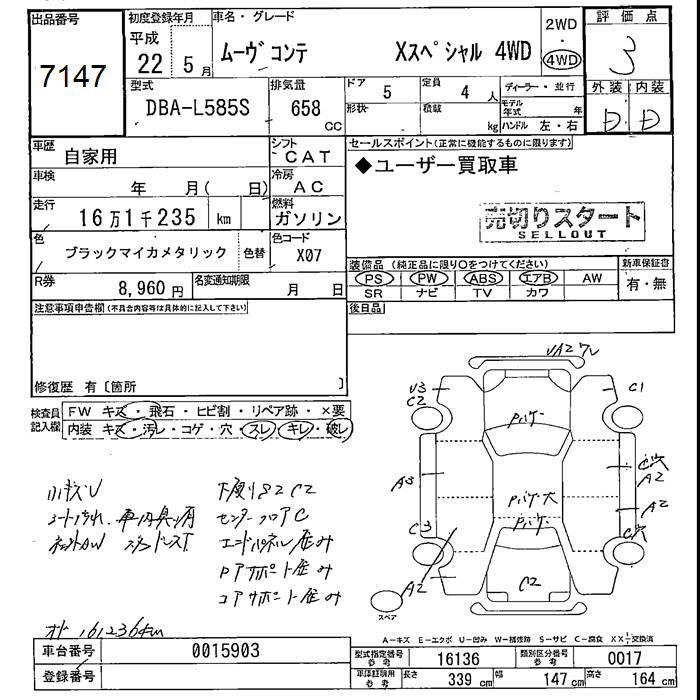 出品番号
7147
初度登録年月
平成
22 5月
車名・グレード
ムーヴ コンテ Xスペシャル 4WD
2WD
・
4WD
評価点
3
型式
DBA-L585S
排気量
658
CC
ドア 5
定員 4 人
形状
積載 kg
ディーラー・並行
モデル年式 年
ハンドル 左・右
外装 内装
D D
車歴
自家用
シフト
CAT
車検
年 月( 日)
冷房
AC
走行
16万1千235 km
燃料
ガソリン
色
ブラックマイカメタリック
色替
色コード
X07
R券
8,960円
名変通知期限
月 日
セールスポイント(正常に機能するものに限ります)
◆ユーザー買取車
売切りスタート
SELLOUT
装備品 (純正品に限り○をつけてください)
PS PW ABS エアB AW
SR ナビ TV カワ
新車保証書
有・無
後日品
注意事項申告欄(不具合内容等は具体的に記入して下さい)
修復歴 有〔箇所 〕
検査員記入欄
FW キズ・飛石・ヒビ割・リペア跡・×要
内装 キズ・汚レ・コゲ・穴・スレ・キレ・破レ
小キズU
シートヨゴレ 車内臭有
下廻りS2C2
センターフロアC
エンドパネル歪み
Rアサポート歪み
コアサポート歪み
オド 161236km
UA2ワレ
U3
C2
C1
A3
C3
A2
C穴
A2
A2
C穴
C2
パーケー
パケ大
パケー
スペア
A-キズ E-エクボ U-凹み W-補修跡 S-サビ C-腐食 XX-交換済
車台番号
0015903
登録番号
型式指定番号
参考
16136
類別区分番号
参考
0017
車庫証明用
参考
長さ
339 cm
幅
147 cm
高さ
164 cm